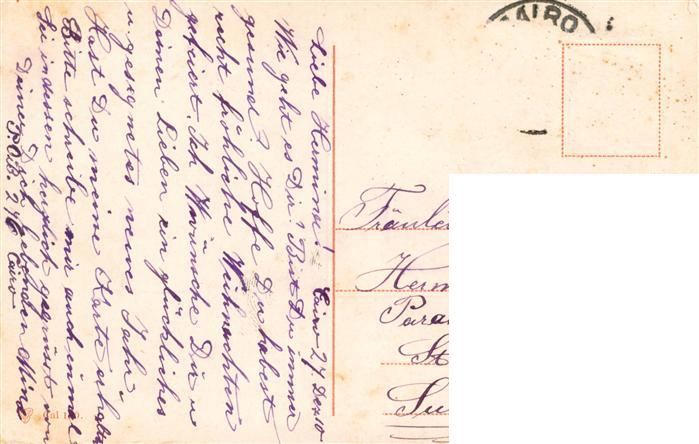 CAIRO
Cairo 27 Dez 10
Liebe Hermine!
Wie geht es Dir? Bist Du immer
gesund? Hoffe Du habest
recht fröhliche Weihnachten
gefeiert. Ich wünsche Dir u
Deinen Lieben ein glückliches
u gesegnetes neues Jahr.
Hast Du meine Karte erhalten
Bitte schreibe mir auch einmal
Sei indessen herzlich gegrüsst von
Deiner Dich liebenden Mina
P.O.B. Cairo
Fräulei
Herm
Para
St